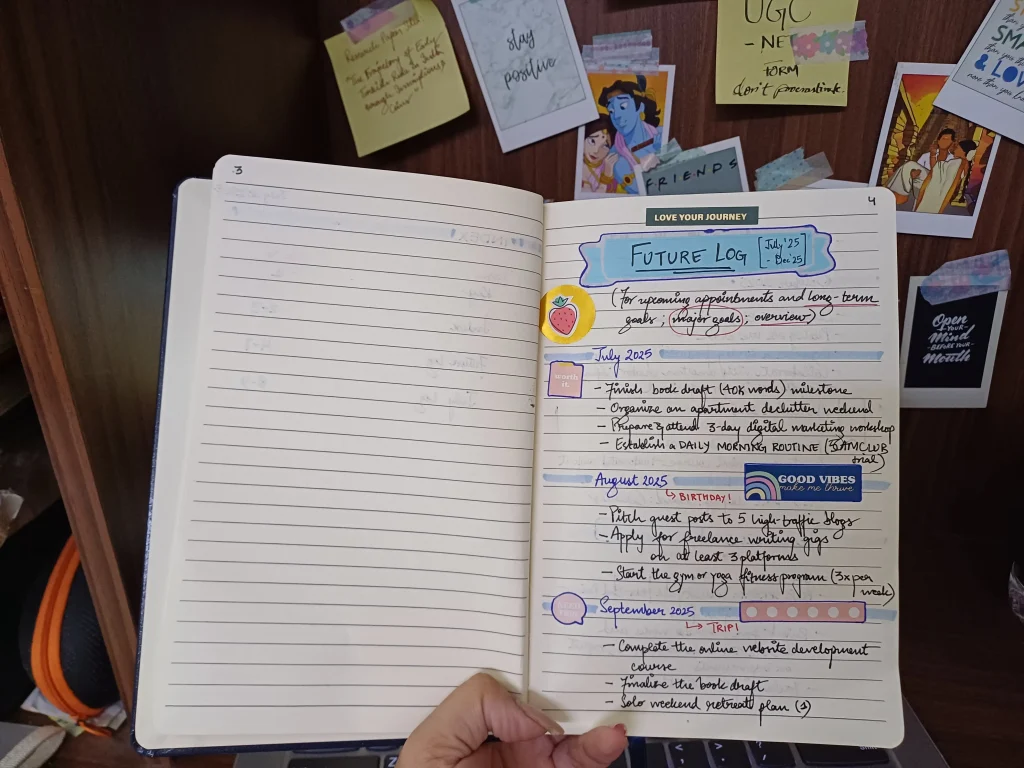 Research Paper
stay
positive
UGC
- NET
FORM
don't procrastinate.
FRIENDS
SM
& LO
Open
YOUR
Mind
BEFORE YOUR
Mouth
3
4
LOVE YOUR JOURNEY
FUTURE LOG [July '25
- Dec '25]
(For upcoming appointments and long-term
goals ; major goals ; overview)
July 2025
worth
it.
- Finish book draft (40k words) milestone
- Organize an apartment declutter weekend
- Prepare & attend 3-day digital marketing workshop
- Establish a DAILY MORNING ROUTINE (5AMCLUB
trial)
August 2025
↳ BIRTHDAY!
GOOD VIBES
make me thrive
- Pitch guest posts to 5 high-traffic blogs
- Apply for freelance writing gigs
on at least 3 platforms
- Start the gym or yoga fitness program (3x per
week)
September 2025
↳ TRIP!
- Complete the online website development
course
- Finalise the book draft
- Solo weekend retreat plan (1)